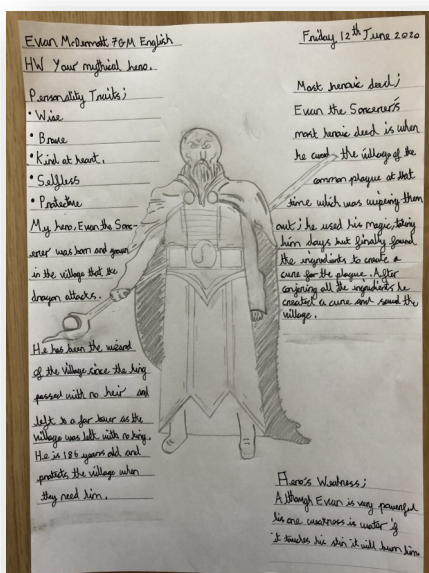 Evan McDermott 7GM English
Friday 12th June 2020
HW Your mythical hero.
Personality Traits;
• Wise
• Brave
• Kind at heart.
• Selfless
• Protective
My hero, Evan the Sorc-
erer was born and grown
in the village that the
dragon attacks.
He has been the wizard
of the village since the king
passed with no heir and
left to a far tower as the
village was left with no king.
He is 186 years old and
protects the village when
they need him.
Most heroic deed;
Evan the Sorcerer's
most heroic deed is when
he cured the village of the
common plague at that
time which was wiping them
out; he used his magic, taking
him days but finally found
the ingredients to create a
cure for the plague. After
conjuring all the ingredients he
created a cure and saved the
village.
Hero's Weakness;
Although Evan is very powerful
his one weakness is water if
it touches his skin it will burn him